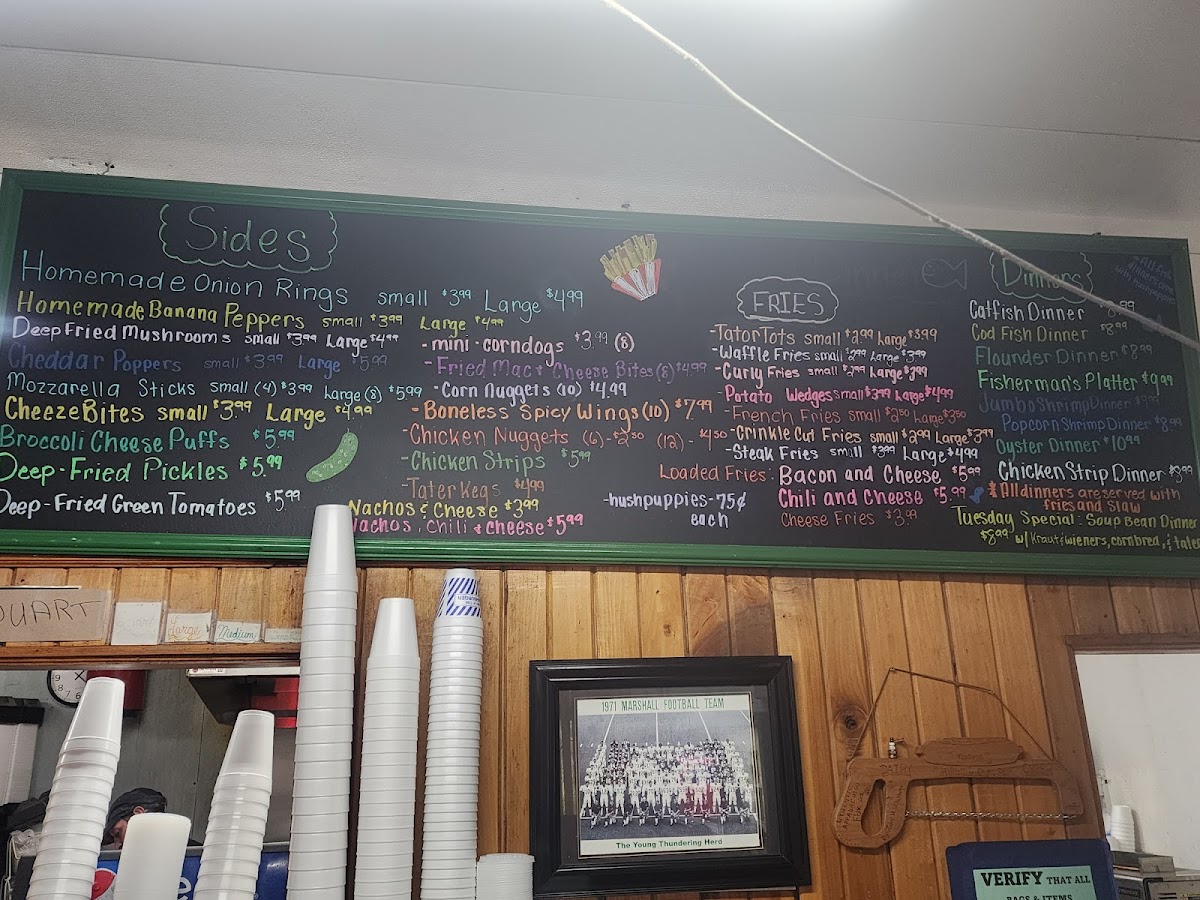 Sides
Homemade Onion Rings small $3.99 Large $4.99
Homemade Banana Peppers small $3.99 Large $4.99
Deep Fried Mushrooms small $3.99 Large $4.99
Cheddar Poppers small $3.99 Large $5.99
Mozzarella Sticks small (4) $3.99 Large (8) $5.99
Cheeze Bites small $3.99 Large $4.99
Broccoli Cheese Puffs $5.99
Deep-Fried Pickles $5.99
Deep-Fried Green Tomatoes $5.99
-mini-corndogs $3.99 (8)
-Fried Mac & Cheese Bites (8) $4.99
-Corn Nuggets (10) $4.99
-Boneless Spicy Wings (10) $7.99
-Chicken Nuggets (6)-$2.50 (12)-$4.50
-Chicken Strips $5.99
-Tater Kegs $4.99
Nachos & Cheese $3.99
Nachos, Chili & Cheese $5.99
FRIES
-Tator Tots small $2.99 Large $3.99
-Waffle Fries small $2.99 Large $3.99
-Curly Fries small $2.99 Large $3.99
Potato Wedges small $3.99 Large $4.99
-French Fries small $2.50 Large $3.50
-Crinkle Cut Fries small $2.99 Large $3.99
-Steak Fries small $3.99 Large $4.99
Loaded Fries: Bacon and Cheese $5.99
Chili and Cheese $5.99
Cheese Fries $3.99
-hushpuppies-75¢
each
Dinners
All fish
dinners come
with hushpuppies
Catfish Dinner 8.99
Cod Fish Dinner $8.99
Flounder Dinner $8.99
Fisherman's Platter $9.99
Jumbo Shrimp Dinner $9.99
Popcorn Shrimp Dinner $8.99
Oyster Dinner $10.99
Chicken Strip Dinner $9.99
* All dinners are served with
fries and slaw
Tuesday Special: Soup Bean Dinner
$8.99 w/ Kraut & wieners, cornbred, & tater
QUART
Large
Medium
1971 MARSHALL FOOTBALL TEAM
The Young Thundering Herd
VERIFY THAT ALL
BAGS & ITEMS